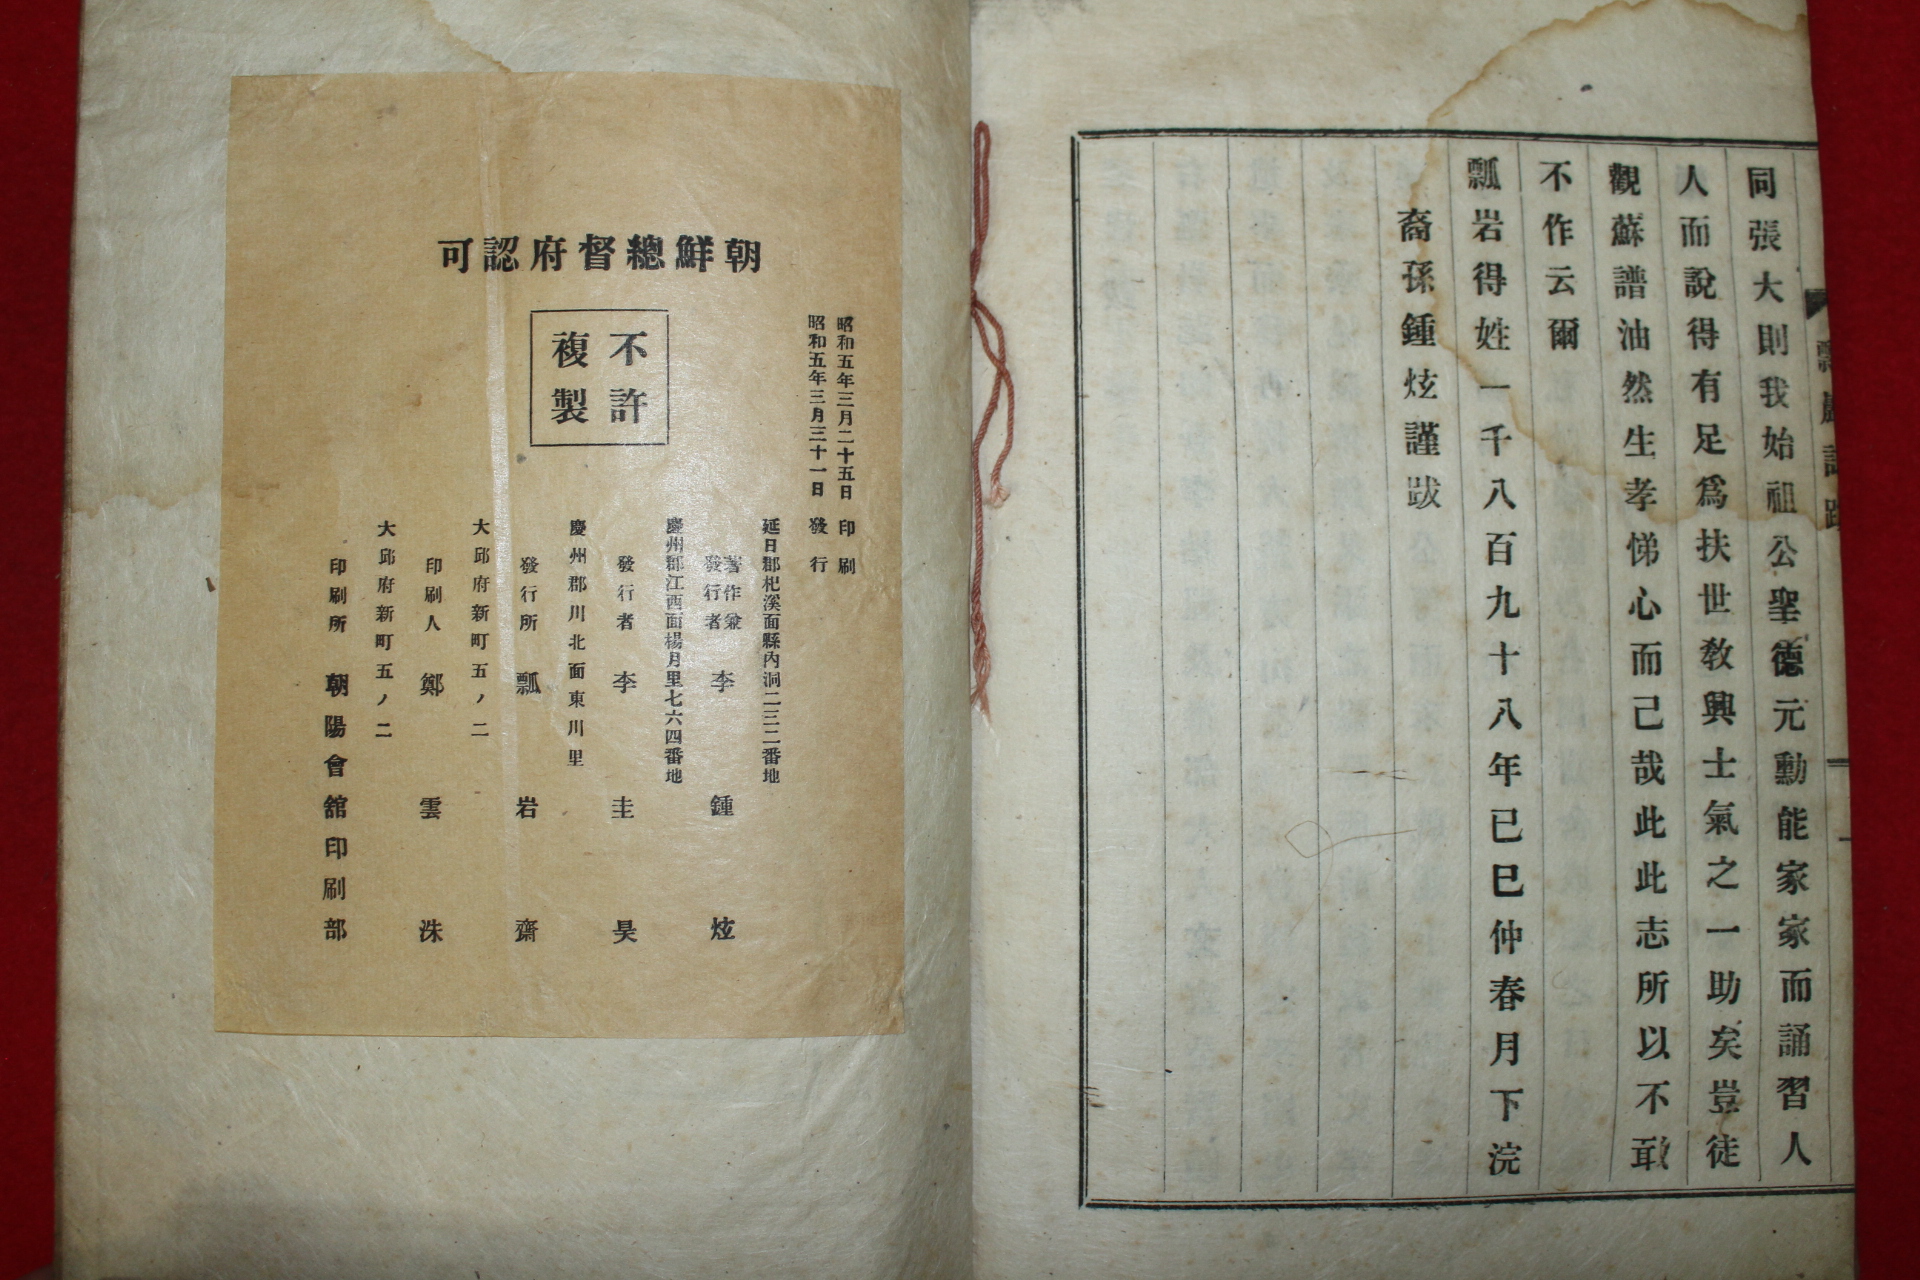 同張大則我始祖公聖德元勳能家家而誦習人
人而說得有足爲扶世敎興士氣之一助矣豈徒
觀蘇譜油然生孝悌心而己哉此此志所以不敢
不作云爾
瓢岩得姓一千八百九十八年已巳仲春月下浣
裔孫鍾炫謹跋
朝鮮總督府認可
不許
複製
昭和五年三月二十五日 印刷
昭和五年三月三十一日 發行
延日郡杞溪面縣內洞二三二番地
著作兼
發行者 李鍾炫
慶州郡江西面楊月里七六四番地
發行者 李圭昊
慶州郡川北面東川里
發行所 瓢岩齋
大邱府新町五ノ二
印刷人 鄭雲洙
大邱府新町五ノ二
印刷所 朝陽會舘印刷部